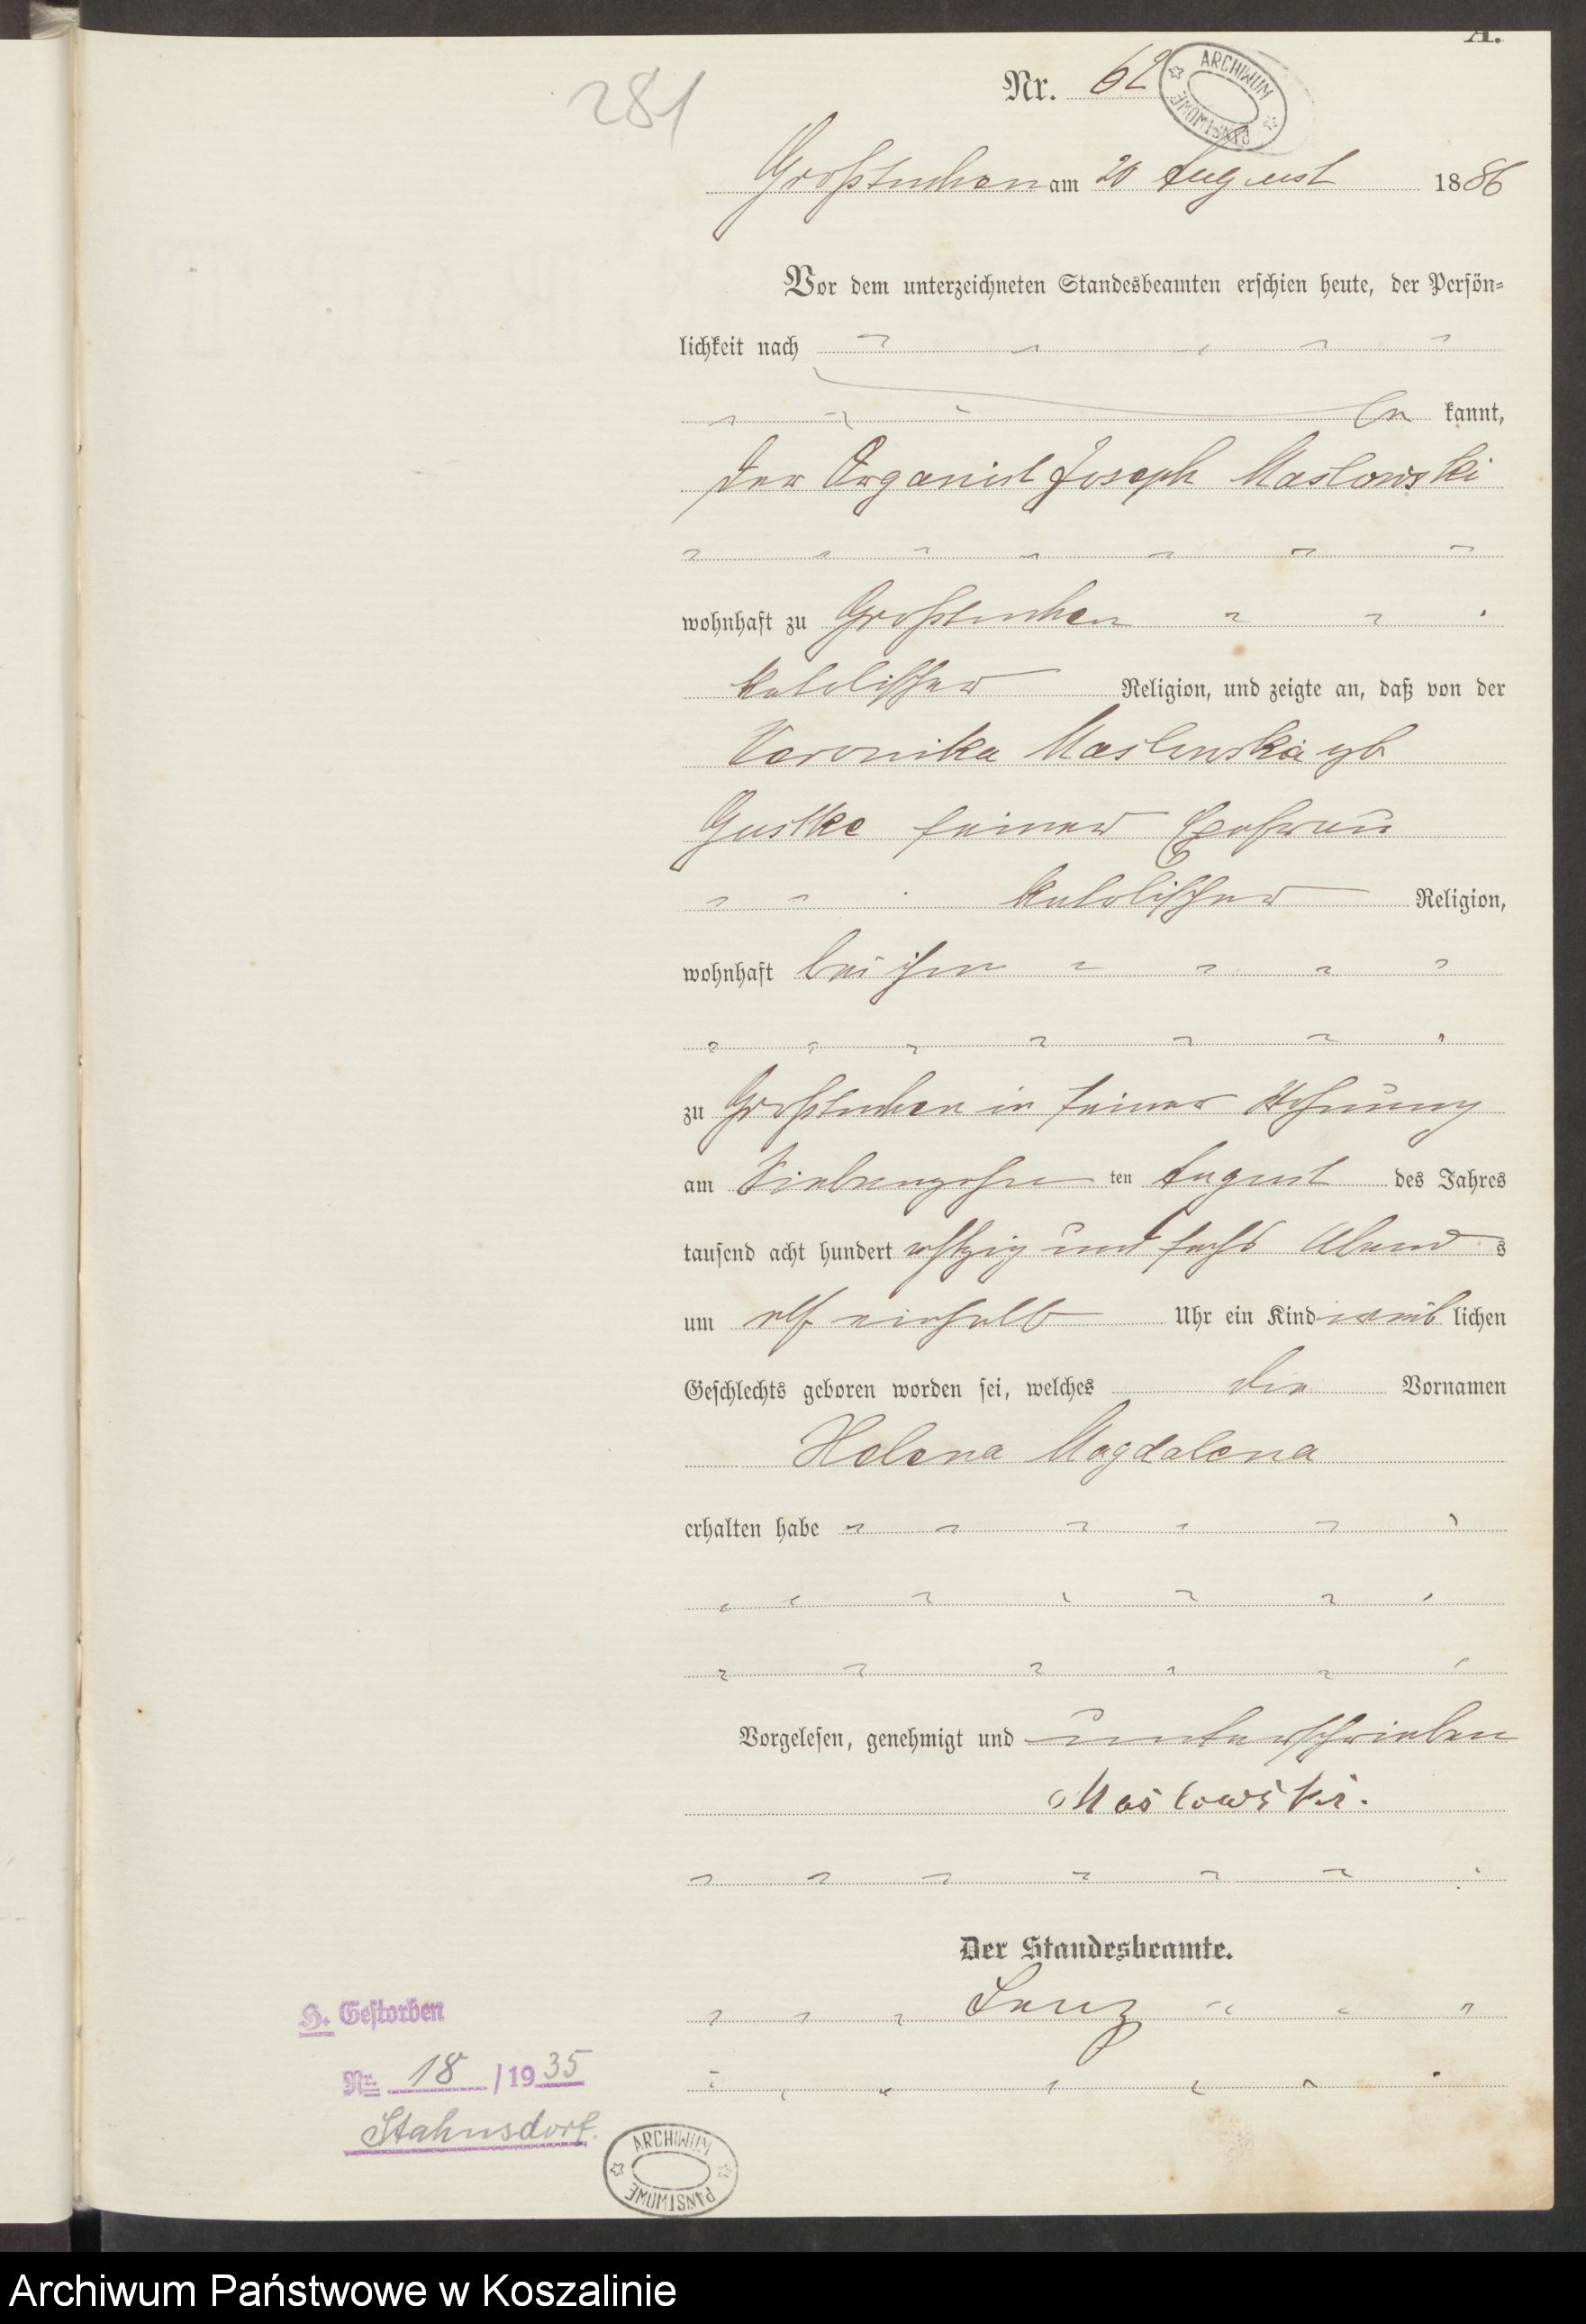 A.
281
Nr. 62
ARCHIWUM PAŃSTWOWE
Großtuchen am 20 August 1886
Vor dem unterzeichneten Standesbeamten erschien heute, der Persön-
lichkeit nach
be kannt,
der Organist Joseph Maslowski
wohnhaft zu Großtuchen
katolischer Religion, und zeigte an, daß von der
Veronika Maslowska geb
Gustke seiner Ehefrau
katolischer Religion,
wohnhaft bei ihm
zu Großtuchen in seiner Wohnung
am Siebenzehn ten August des Jahres
tausend acht hundert achtzig und sechs Abend s
um elf einhalb Uhr ein Kind weib lichen
Geschlechts geboren worden sei, welches die Vornamen
Helena Magdalena
erhalten habe
Vorgelesen, genehmigt und unterschrieben
Maslowski.
Der Standesbeamte.
Lenz
H. Gestorben
Nr. 18 / 1935
Stahnsdorf.
ARCHIWUM PAŃSTWOWE
Archiwum Państwowe w Koszalinie